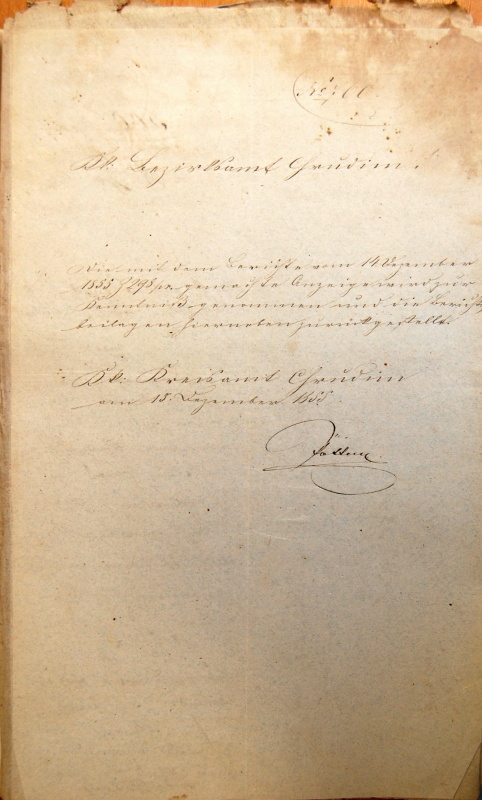 Kk. Bezirksamt Chrudim.
Die mit dem Berichte vom 14 Dezember
1855 gemachte Anzeige wird zur
Kenntniß genommen und die Berichts
beilagen hierneben zurückgestellt.
Kk: Kreisamt Chrudim
am 15. Dezember 1855